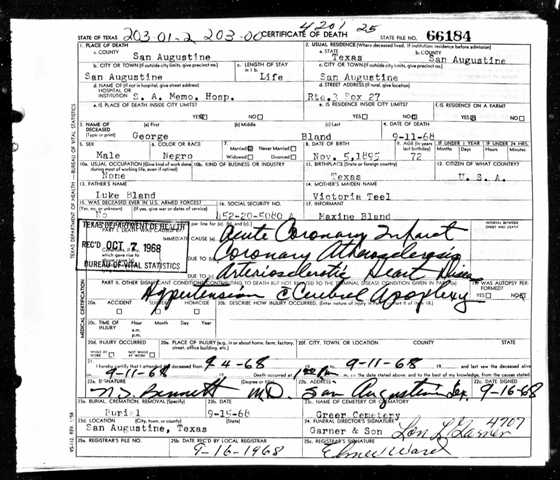 203-01-2 203-00 4201 25
STATE OF TEXAS CERTIFICATE OF DEATH STATE FILE NO. 66184
1. PLACE OF DEATH 2. USUAL RESIDENCE (Where deceased lived. If institution: residence before admission)
a. COUNTY San Augustine a. STATE Texas b. COUNTY San Augustine
b. CITY OR TOWN (If outside city limits, give precinct no.) c. LENGTH OF STAY c. CITY OR TOWN (If outside city limits, give precinct no.)
San Augustine Life San Augustine
d. NAME OF (If not in hospital, give street address) d. STREET ADDRESS (If rural, give location)
HOSPITAL OR
INSTITUTION S. A. Memo. Hosp. Rte.3 Box 27
e. IS PLACE OF DEATH INSIDE CITY LIMITS? e. IS RESIDENCE INSIDE CITY LIMITS? f. IS RESIDENCE ON A FARM?
YES NO YES NO YES NO
3. NAME OF DECEASED (a) First (b) Middle (c) Last 4. DATE OF DEATH
(Type or print) George Bland 9-11-68
5. SEX 6. COLOR OR RACE 7. Married Never Married 8. DATE OF BIRTH 9. AGE (In years last birthday) IF UNDER 1 YEAR IF UNDER 24 HRS.
Male Negro Widowed Divorced Nov. 5,1895 72 Months Days Hours Min.
10a. USUAL OCCUPATION (Give kind of work done during most of working life, even if retired) 10b. KIND OF BUSINESS OR INDUSTRY 11. BIRTHPLACE (State or foreign country) 12. CITIZEN OF WHAT COUNTRY?
None Texas U. S. A.
13. FATHER'S NAME 14. MOTHER'S MAIDEN NAME
Luke Bland Victoria Teel
15. WAS DECEASED EVER IN U.S. ARMED FORCES? 16. SOCIAL SECURITY NO. 17. INFORMANT
(Yes, no, or unknown) (If yes, give war or dates of service)
No 452-20-5080 A Maxine Bland
TEXAS DEPARTMENT OF HEALTH
REC'D OCT 7 1968
BUREAU OF VITAL STATISTICS
IMMEDIATE CAUSE (a) Acute Coronary Infarct
DUE TO (b) Coronary Atherosclerosis
DUE TO (c) Arteriosclerotic Heart Disease
PART II. OTHER SIGNIFICANT CONDITIONS CONTRIBUTING TO DEATH BUT NOT RELATED TO THE TERMINAL DISEASE CONDITION GIVEN IN PART I(a) 19. WAS AUTOPSY PERFORMED?
Hypertension c Cerebral Apoplexy YES NO
20a. ACCIDENT SUICIDE HOMICIDE
20c. TIME OF INJURY Hour Month Day Year
a.m.
p.m.
20d. INJURY OCCURRED 20e. PLACE OF INJURY (e.g. in or about home, farm, factory, street, office building, etc.) 20f. CITY, TOWN, OR LOCATION COUNTY STATE
WHILE AT WORK NOT WHILE AT WORK
21. I hereby certify that I attended the deceased from 9-4-68 to 9-11-68 and last saw the deceased alive
on 9-11-68 Death occurred at m. on the date stated above, and to the best of my knowledge, from the causes stated.
22a. SIGNATURE (Degree or title) 22b. ADDRESS 22c. DATE SIGNED
Bennett M.D. San Augustine Tex. 9-16-68
23a. BURIAL, CREMATION, REMOVAL (Specify) 23b. DATE 23c. NAME OF CEMETERY OR CREMATORY
Burial 9-15-68 Greer Cemetery
23d. LOCATION (City, town, or county) (State) 24. FUNERAL DIRECTOR'S SIGNATURE 4707
San Augustine, Texas Garner & Son Lon L. Garner
25a. REGISTRAR'S FILE NO. 25b. DATE REC'D BY LOCAL REGISTRAR 25c. REGISTRAR'S SIGNATURE
9-16-1968 Elmer Ward
TEXAS DEPARTMENT OF HEALTH — BUREAU OF VITAL STATISTICS
MEDICAL CERTIFICATION